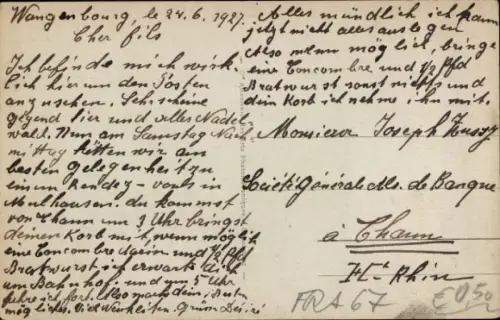 Wangenbourg, le 24.6.1927.
Cher fils
Ich befinde mich wirk-
lich hier um den Posten
anzusehen. Sehr schöne
gegend hier und alles Nadel
wald. Nun am Samstag Nach
mittag hätten wir am
besten gelegenheit zu
einem Rendez-vous in
Mulhausen. du kommst
von Thann um 3 Uhr bringst
deinen Korb mit, wenn möglich
eine Concombre drein und 1/2 Pfd
Bratwurst, ich erwarte dich
am Bahnhof. und um 5 Uhr
fahre ich fort. Also mach dein
möglichs. Viel Neuheiten. Gruss Désiré
Alles mündlich ich kann
jetzt nicht alles auslegen
Also wenn möglich, bringe
eine Concombre und 1/2 Pfd
Bratwurst sonst nichts und
dein Korb ich nehme ihn mit.
Monsieur Joseph
Société Générale Als. de Banque
à Thann
Ht Rhin
FRA 67
€ 0,50